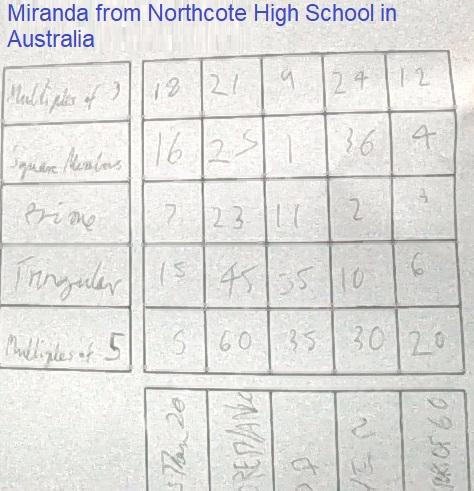 Miranda from Northcote High School in
Australia
Multiples of 3 18 21 9 24 12
Square Numbers 16 25 1 36 4
Prime 7 23 11 2 3
Triangular 15 45 55 10 6
Multiples of 5 5 60 35 30 20
Than 20
OF 60